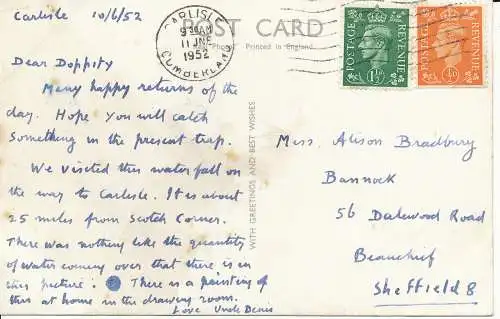 Carlisle 10/6/52
POST CARD
Photo
Printed in England
CARLISLE
9 30AM
11 JNE
1952
CUMBERLAND
POSTAGE
REVENUE
1½D
POSTAGE
REVENUE
½D
Dear Doppity
Many happy returns of the
day. Hope you will catch
something in the present trap.
We visited this waterfall on
the way to Carlisle. It is about
25 miles from Scotch Corner.
There was nothing like the quantity
of water coming over that there is in
this picture. There is a painting of
this at home in the drawing room.
Love Uncle Denis
WITH GREETINGS AND BEST WISHES
Miss. Alison Bradbury
Bannock
56 Dalewood Road
Beauchief
Sheffield 8